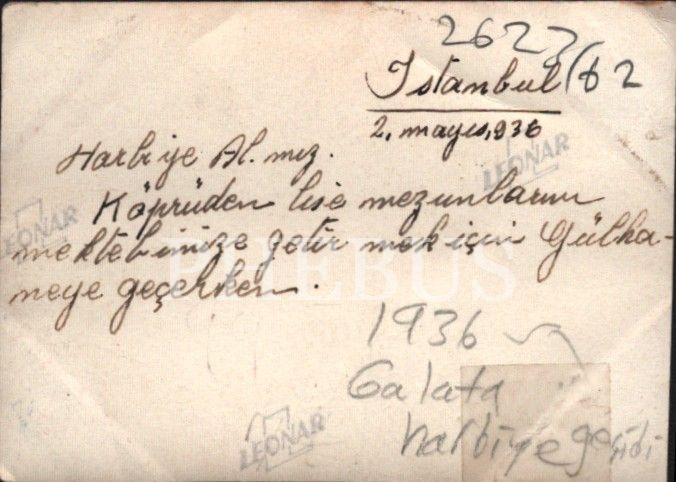 2623/62
Istanbul
2. mayıs, 936
Harbiye Al. mız.
Köprüden lise mezunlarını
mektebimize getirmek için Gülha-
neye geçerken.
1936
Galata
harbiye geçidi
LEONAR
LEONAR
LEONAR
PHEBUS